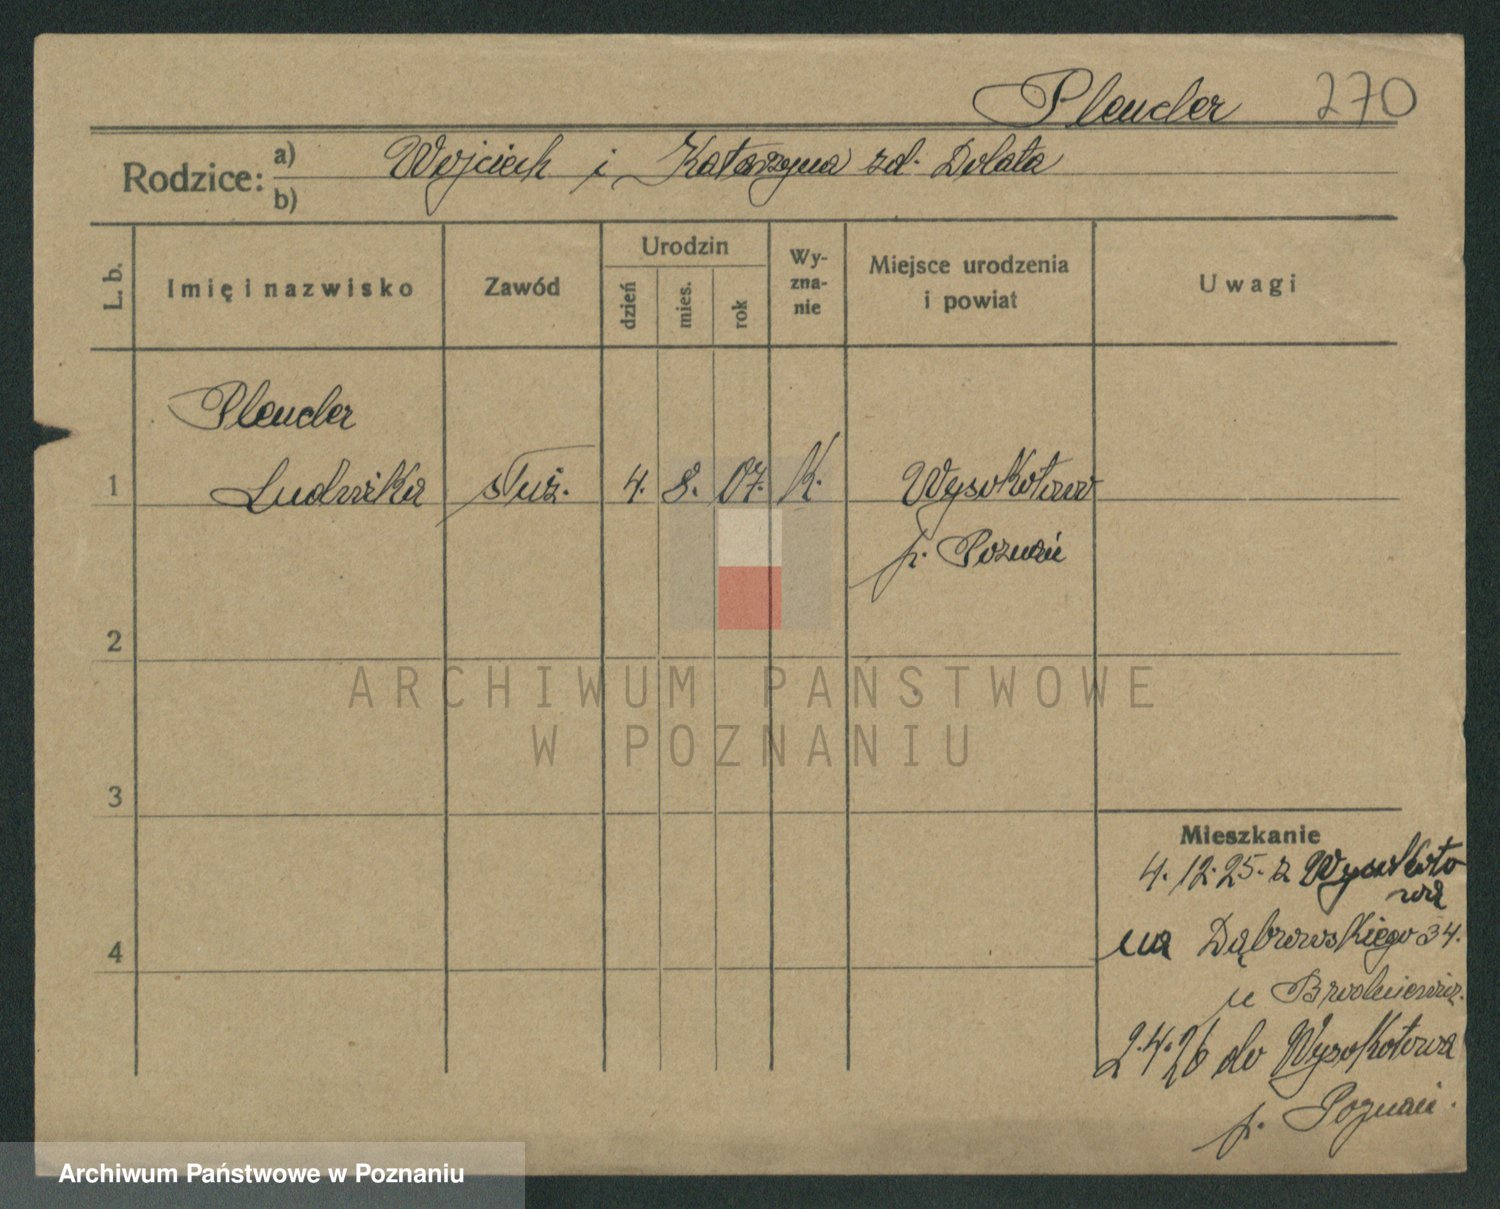 Plender 270
Rodzice: a) Wojciech i Katarzyna zd. Dolata
b)
L. b. Imię i nazwisko Zawód Urodzin dzień mies. rok Wy-zna-nie Miejsce urodzenia i powiat Uwagi
Plender
1 Ludwika służ. 4. 8. 07. K. Wysokotowo
p. Poznań
2
ARCHIWUM PAŃSTWOWE
W POZNANIU
3
Mieszkanie
4. 12. 25. z Wysokoto
wa
na Dąbrowskiego 34.
4
u
2.4.26 do Wysokotowa
p. Poznań.
Archiwum Państwowe w Poznaniu